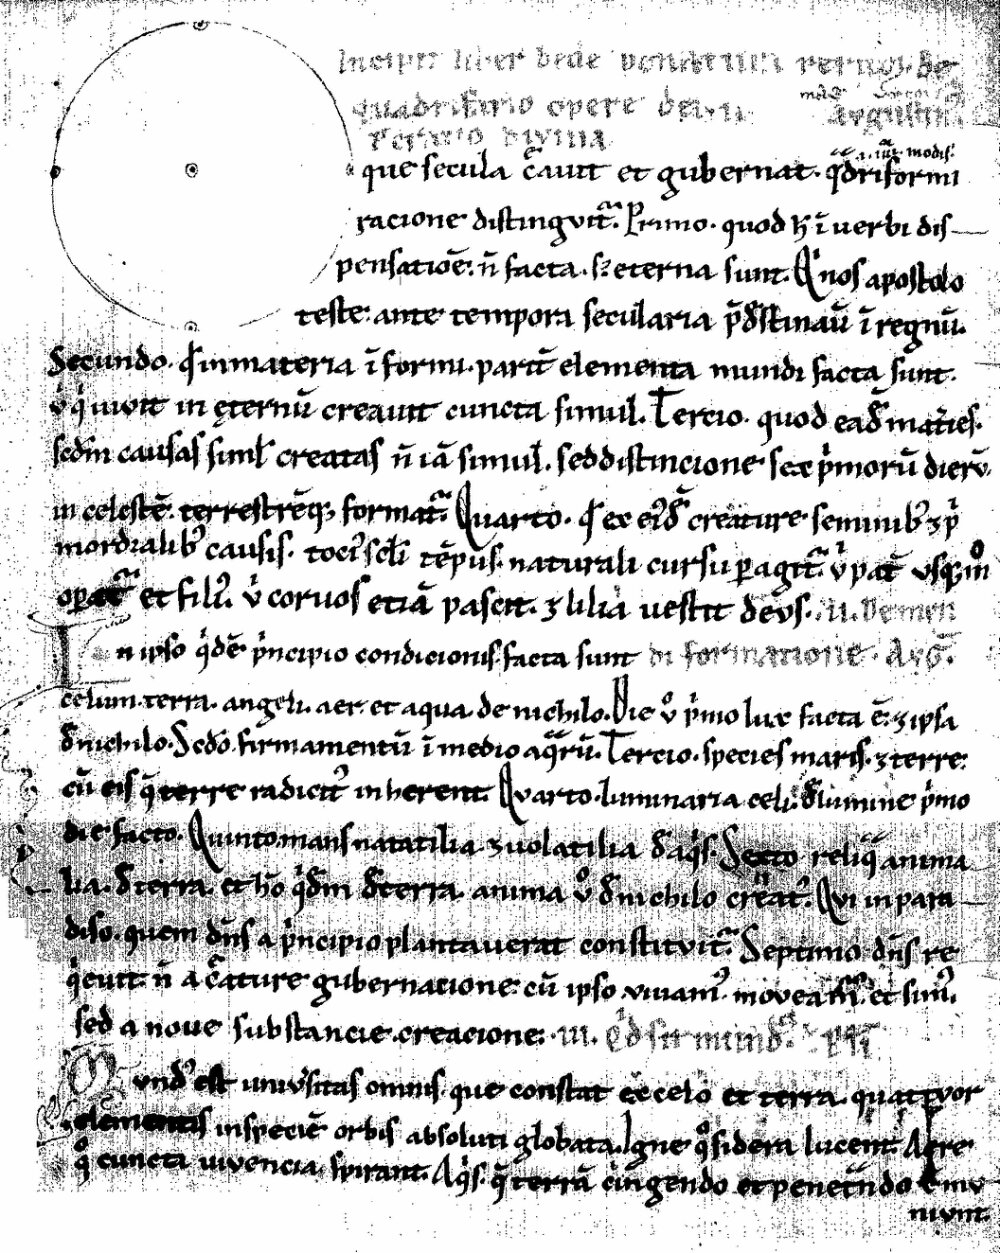 Incipit liber bede de naturis rerum. De
quadrifario opere dei. Augustin
que secula c̄auit et gubernat. q̄driformi .i. iiii. modis.
racione distinguit᷒. Primo. quod h̄ ī uerbi dis
pensatiōe. n̄ facta. s; eterna sunt. Q̓ nos apostolo
teste. ante tempora secularia p̄dēstinauī ī regnū.
Secundo. q̓ in materia īformi. parit̄ elementa mundi facta sunt.
 v̓ q̓ uiuit in ęternū creauit cuncta simul. Tercio. quod ead̄ mat̓ies.
scd̄m causas siml̄ creatas n̄ iā simul. sed distincione sex p̓morū dierū.
in celestē. terrestrēq; format᷒. Quarto. q̓ ex ei᷒d̄ creature seminib᷒ ⁊ p̓
mordialib᷒ causis. toci᷒ scl̓i tēpus. naturali cursu ꝑagit᷒. v̓ pat̄ usq; m̊
opat᷒ et fili᷒. v̓ coruos etiā pascit. ⁊ lilia uestit deus. .ii. De mun
In ipso q̓dē p̓ncipio condicionis. facta sunt di formatione. Aug̅.
celum. terra. angeli. aer. et aqua. de nichilo. Die v̊ p̓mo lux facta ē. ⁊ ipsa
d̄ nichilo. Scdo. firmamentū ī medio aq̄rū. Tercio. species maris. ⁊ terre.
cū eis q̄ terre radicit᷒ inherent. Quarto. luminaria celi. d̄ lumine p̓mo
die facto. Quinto. maris natatilia. ⁊ uolatilia d̄ aq̓s. Sexto reliq̄ anima
lia. d̄ terra. et hō q̓dm d̄ terra. anima v̊ d̄ nichilo creat᷒. Qui in para
diso. quem dn̄s a p̓ncipio plantauerat constituit᷒. Septimo dn̄s re
q̓euit. n̄ a c̄ature gubernatione. cū ipso uiuam᷒. moueam᷒. et sim᷒.
sed a noue substancie creacione. .iii. Q̓d sit mund᷒. Pli
Mund᷒ est uniu̓sitas omnis. que constat ex celo et terra. quatuor
elementis in speciē orbis absoluti globata. Igne q̊ sidera lucent. Aere
q̊ cuncta uiuencia spirant. Aq̓s. q̄ terrā cingendo et penet᷒ndo c̄mu
niunt.